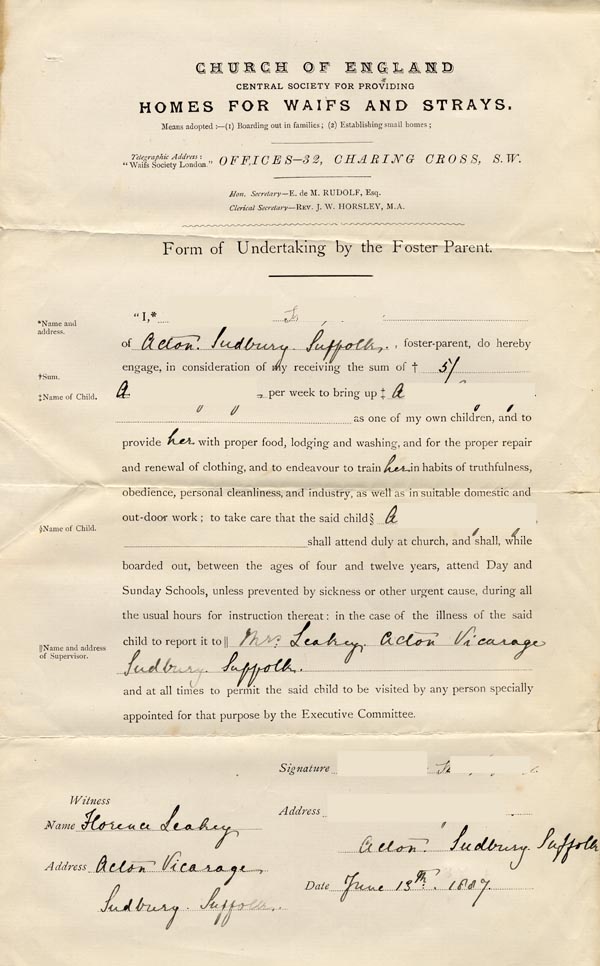 CHURCH OF ENGLAND
CENTRAL SOCIETY FOR PROVIDING
HOMES FOR WAIFS AND STRAYS.
Means adopted :—(1) Boarding out in families; (2) Establishing small homes;
Telegraphic Address:
"Waifs Society London."
OFFICES—32, CHARING CROSS, S.W.
Hon. Secretary—E. de M. RUDOLF, Esq.
Clerical Secretary—REV. J. W. HORSLEY, M.A.
Form of Undertaking by the Foster Parent.
*Name and
address.
"I,*
of Acton. Sudbury. Suffolk., foster-parent, do hereby
engage, in consideration of my receiving the sum of † 5/
†Sum.
‡Name of Child.
A per week to bring up ‡ A
as one of my own children, and to
provide her with proper food, lodging and washing, and for the proper repair
and renewal of clothing, and to endeavour to train her in habits of truthfulness,
obedience, personal cleanliness, and industry, as well as in suitable domestic and
out-door work; to take care that the said child§ A
§Name of Child.
shall attend duly at church, and shall, while
boarded out, between the ages of four and twelve years, attend Day and
Sunday Schools, unless prevented by sickness or other urgent cause, during all
the usual hours for instruction thereat: in the case of the illness of the said
child to report it to ‖ Mrs. Leakey. Acton Vicarage
‖Name and address
of Supervisor.
Sudbury. Suffolk.
and at all times to permit the said child to be visited by any person specially
appointed for that purpose by the Executive Committee.
Signature
Witness
Name Florence Leakey
Address
Acton. Sudbury. Suffolk
Address Acton Vicarage
Sudbury. Suffolk.
Date June 13th. 1887.